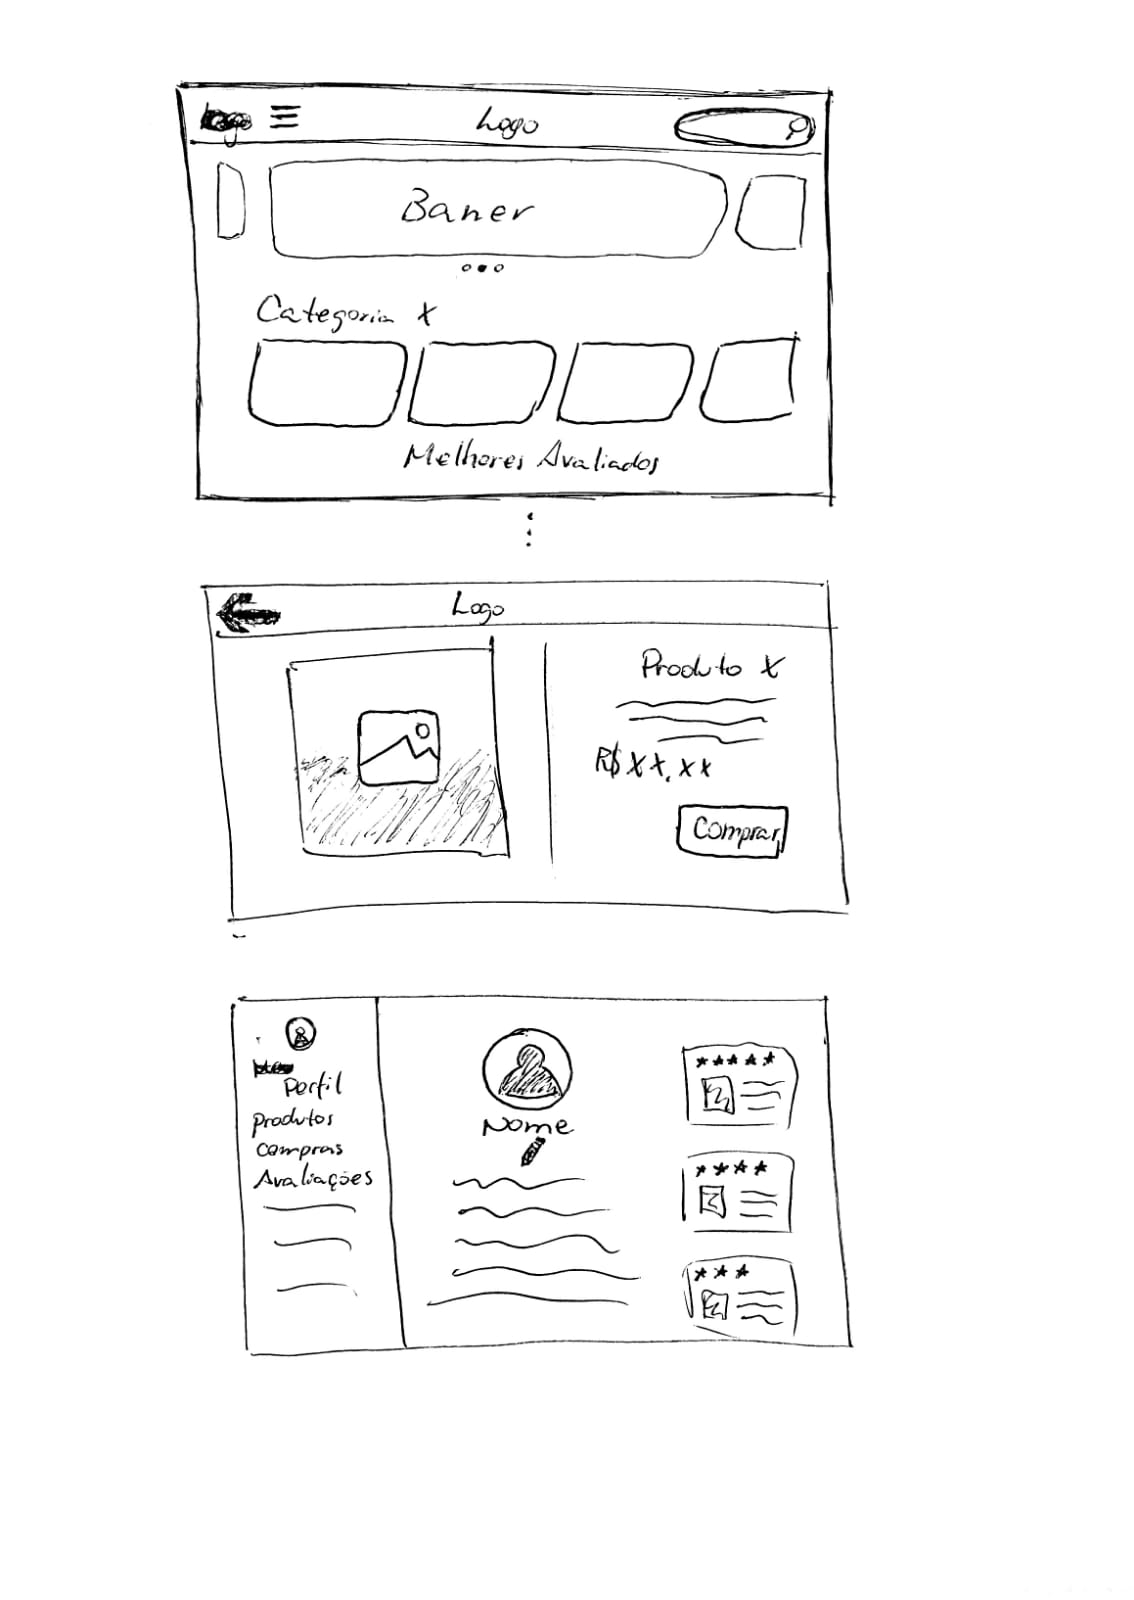 Logo
Logo
Baner
Categoria X
Melhores Avaliados
Logo
Produto X
R$ XX,XX
Comprar
Perfil
Produtos
Compras
Avaliações
Nome